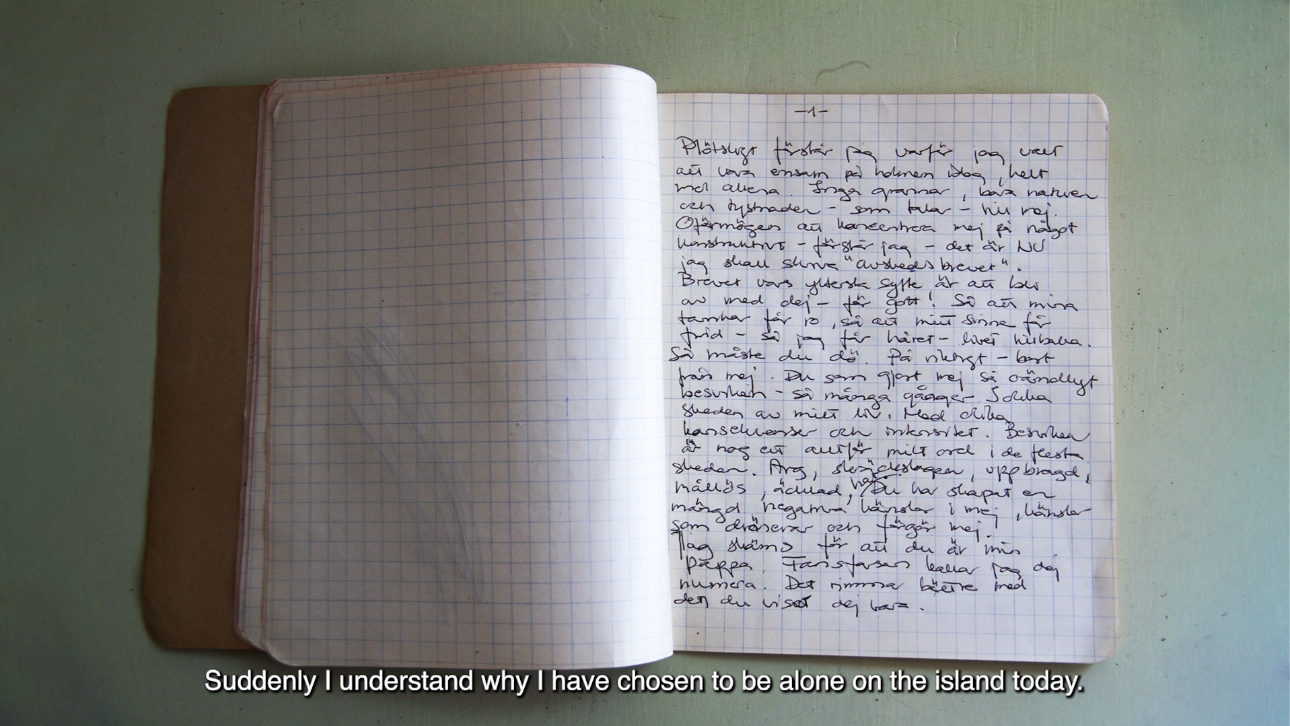 -1-
Plötsligt förstår jag varför jag valt
att vara ensam på holmen idag, helt
mol allena. Inga grannar, bara naturen
och tystnaden - som talar - till mej.
Oförmögen att koncentrera mej på något
konstruktivt - förstår jag - det är NU
jag skall skriva "avskedsbrevet".
Brevet vars yttersta syfte är att bli
av med dej - för gott! Så att mina
tankar får ro, så att mitt sinne får
frid - så jag får livet tillbaka.
Så måste du dö. På riktigt - bort
från mej. Du som gjort mej så oändligt
besviken - så många gånger I olika
skeden av mitt liv. Med olika
konsekvenser och intensitet. Besviken
är nog ett alltför milt ord i de flesta
skeden. Arg, skräckslagen, uppbragd,
mållös, äcklad, Du har skapat en
mängd negativa känslor i mej, känslor
som dränerar och färgar mej.
Jag skäms för att du är min
pappa. Farsfarsan kallar jag dej
numera. Det rimmar bättre med
den du visat dej vara.
Suddenly I understand why I have chosen to be alone on the island today.